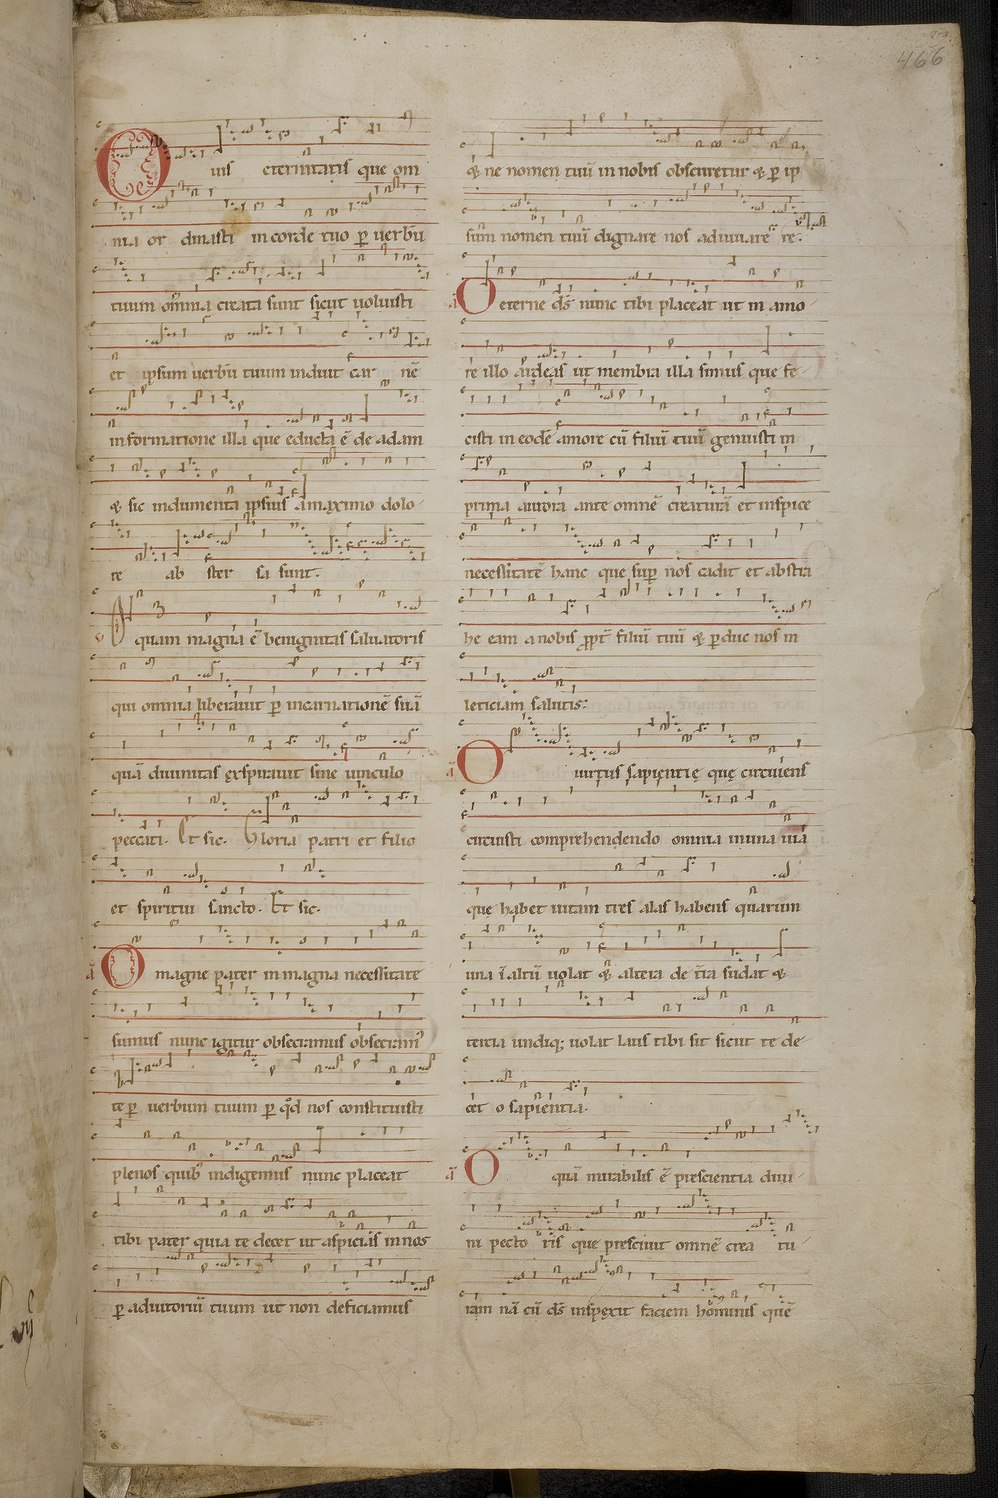 466
O uis eternitatis que om
nia or dinasti in corde tuo ꝑ uerbū
tuum om̄ia creata sunt sicut uoluisti
et ipsum uerbū tuum induit car nē
in formatione illa que educta ē de adam
⁊ sic indumenta ipsius a maximo dolo
re ab ster sa sunt.
℣ O quam magna ē benignitas saluatoris
qui omnia liberauit ꝑ incarnationē suā
quā diuinitas exspirauit sine uinculo
peccati. Et sic. Gloria patri et filio
et spiritui sancto. Et sic.
a̅ O magne pater in magna necessitate
sumus nunc igitur obsecramus obsecram᷒
te ꝑ uerbum tuum ꝑ qd̄ nos constituisti
plenos quib᷒ indigemus nunc placeat
tibi pater quia te decet ut aspicias in nos
ꝑ adiutoriū tuum ut non deficiamus
⁊ ne nomen tuū in nobis obscuretur ⁊ ꝑ ip
sum nomen tuū dignare nos adiuuare re.
a̅ O eterne ds̄ nunc tibi placeat ut in amo
re illo ardeas ut membra illa simus que fe
cisti in eodē amore cū filiū tuū genuisti in
prima aurora ante omnē creaturā et inspice
necessitatē hanc que suꝑ nos cadit et abstra
he eam a nobis ꝓpt̄ filiū tuū ⁊ ꝑduc nos in
leticiam salutis.
a̅ O uirtus sapientię quę circuiens
circuisti comprehendendo omnia in una uia
que habet uitam tres alas habens quarum
una ī altū uolat ⁊ altera de t̄ra sudat ⁊
tercia undiq; uolat Laus tibi sit sicut te de
cet o sapientia.
a̅ O quā mirabilis ē prescientia diui
ni pecto ris que presciuit omnē crea tu
ram nā cū ds̄ inspexit faciem hominis quē